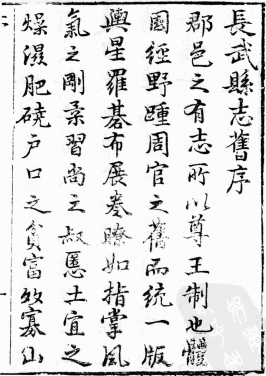 長武縣志舊序
郡邑之有志所以尊王制也體
國經野踵周官之舊而統一版
輿星羅碁布展卷瞭如指掌風
氣之剛柔習尚之淑慝土宜之
燥濕肥磽户口之貧富攷寡山